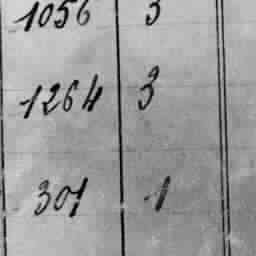 1056 3
1264 3
301 1